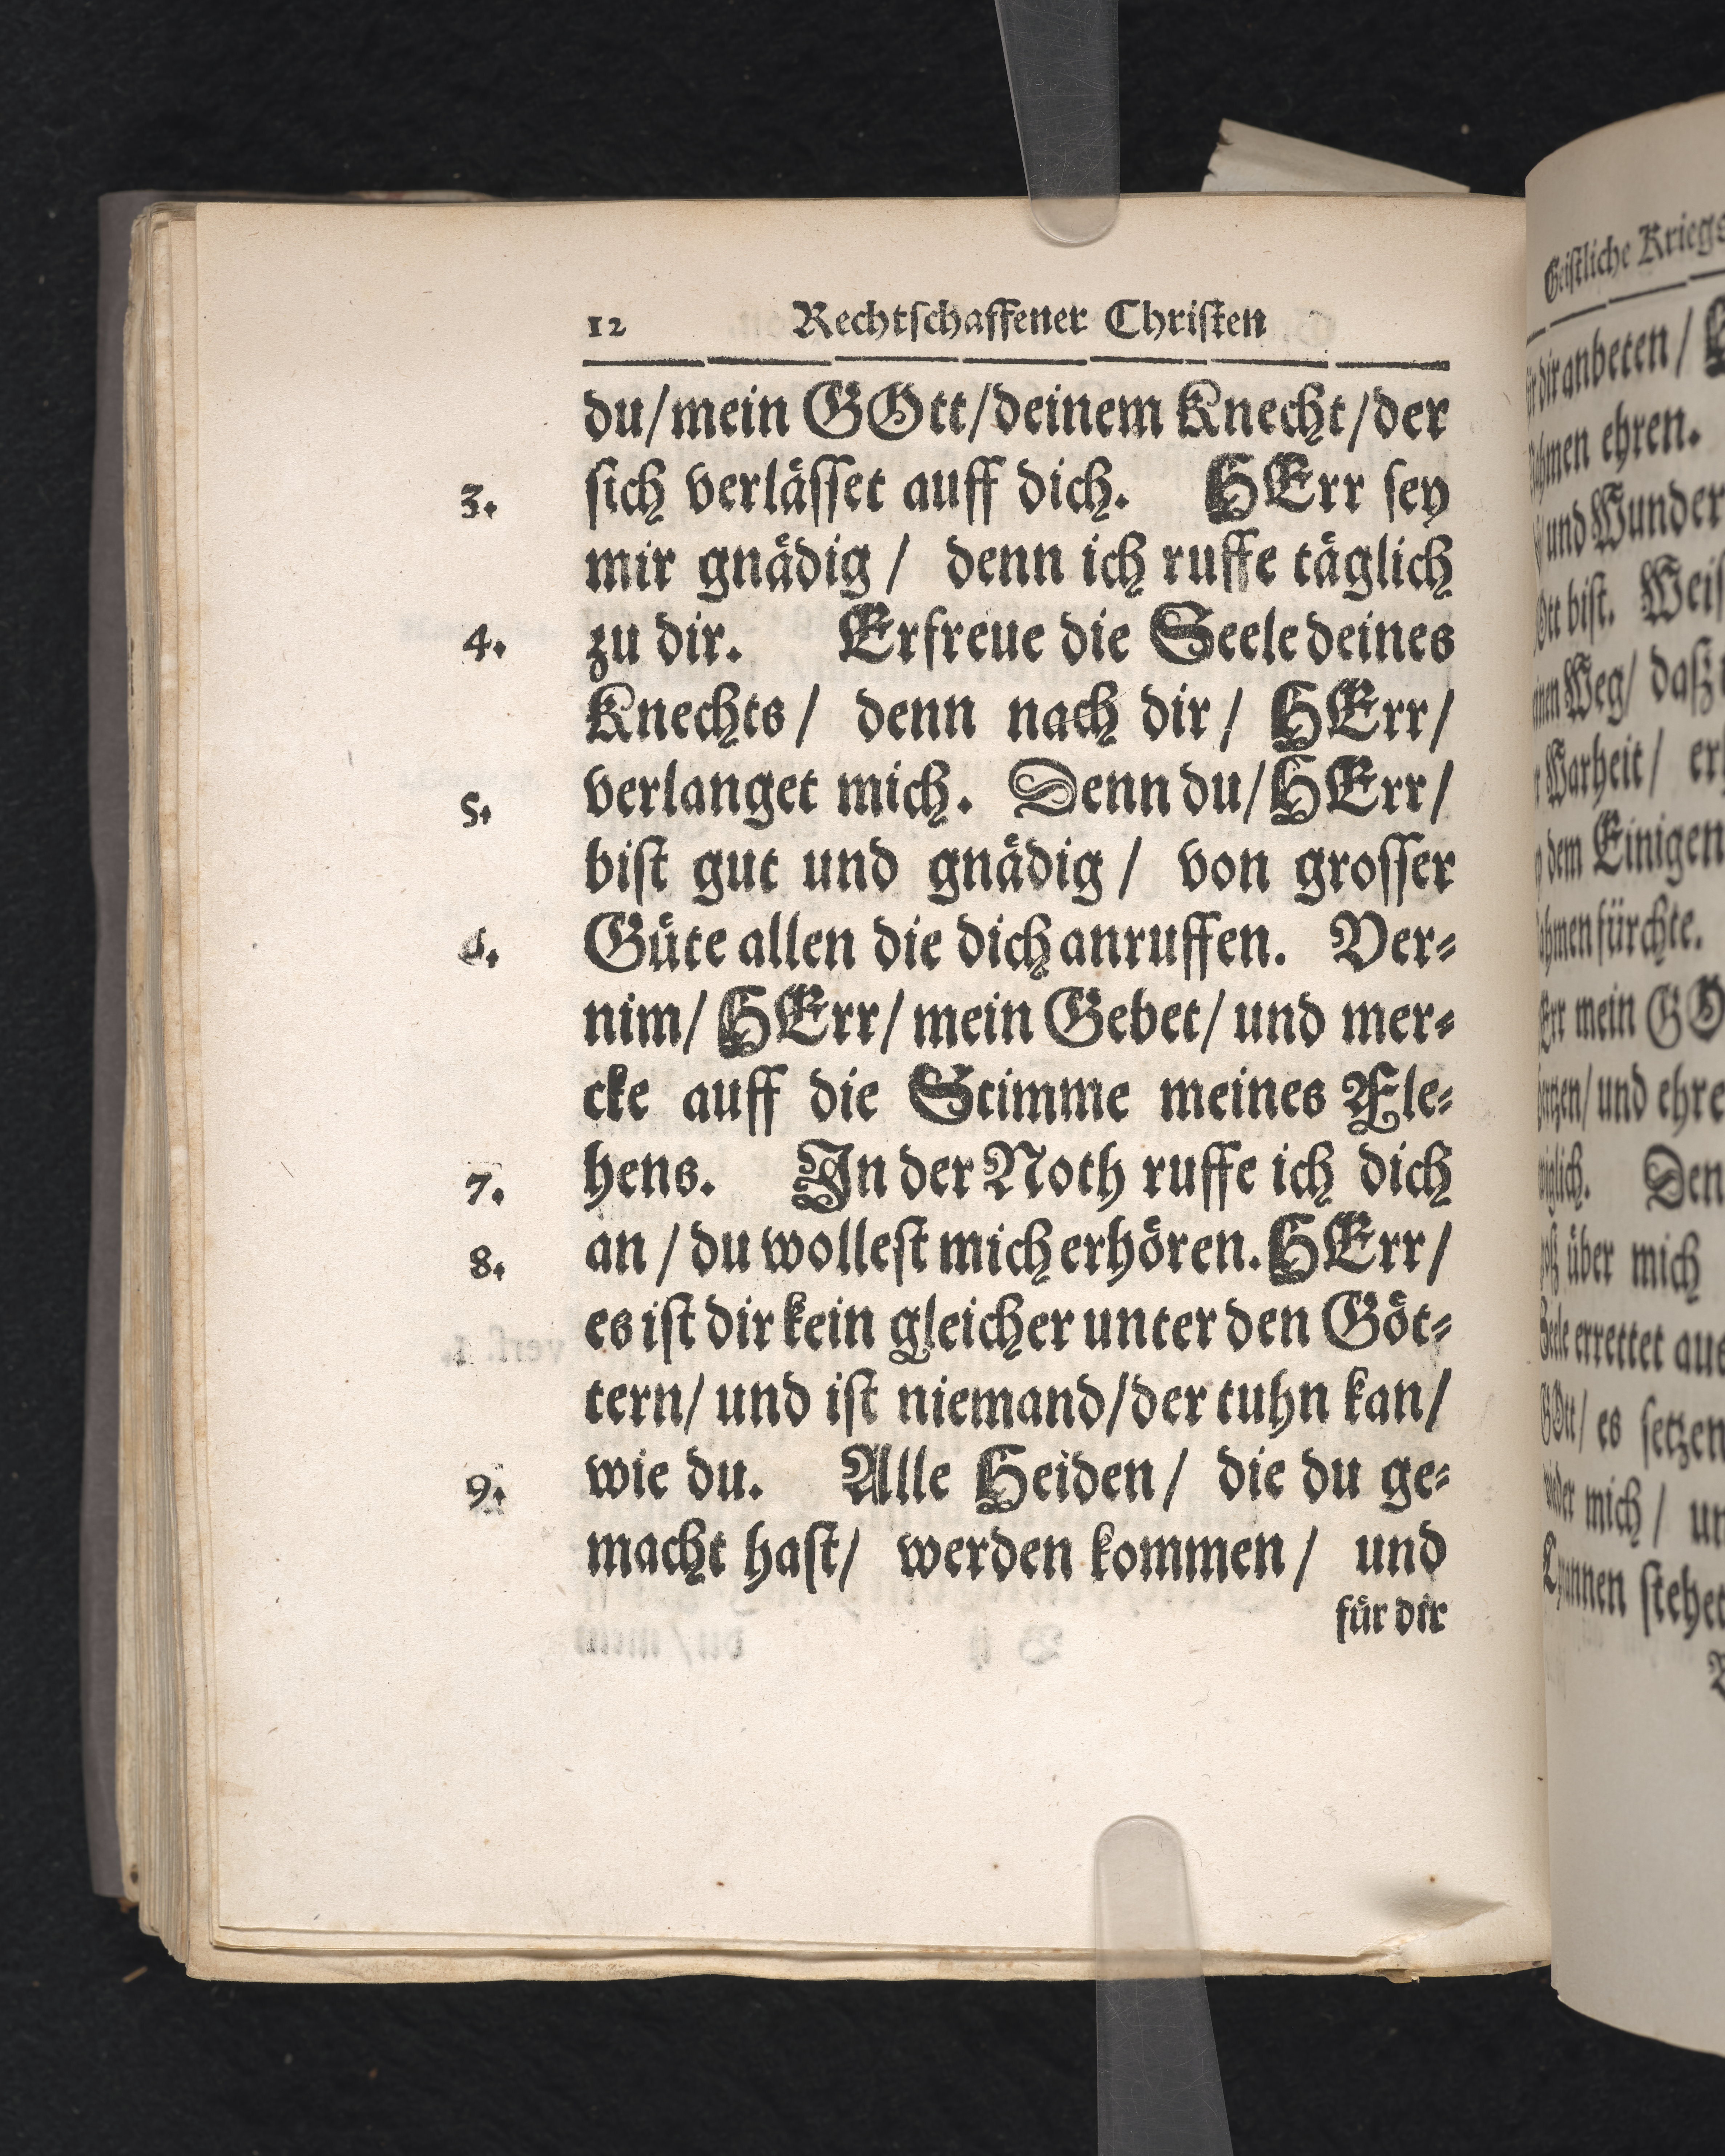 12 Rechtſchaffener Chriſten
du/mein GOtt/deinem Knecht/der
3. ſich verläſſet auff dich. HErr ſey
mir gnädig / denn ich ruffe täglich
4. zu dir. Erfreue die Seele deines
Knechts/ denn nach dir / HErr/
5. verlanget mich. Denn du/HErr/
biſt gut und gnädig / von groſſer
6. Güte allen die dich anruffen. Ver⸗
nim/ HErr/ mein Gebet/ und mer⸗
cke auff die Stimme meines Fle⸗
7. hens. In der Noth ruffe ich dich
8. an / du wolleſt mich erhören. HErr/
es iſt dir kein gleicher unter den Göt⸗
tern/ und iſt niemand/der tuhn kan/
9. wie du. Alle Heiden/ die du ge⸗
macht haſt/ werden kommen / und
für dir
Geiſtliche Kriegs
dir anbeten/
ehren.
und Wunder
biſt.
Weg/ daß
Warheit/
dem Einigen
fürchte.
mein GO
und ehre
Den
über mich
errettet aus
es ſetzen
mich /
ſtehet